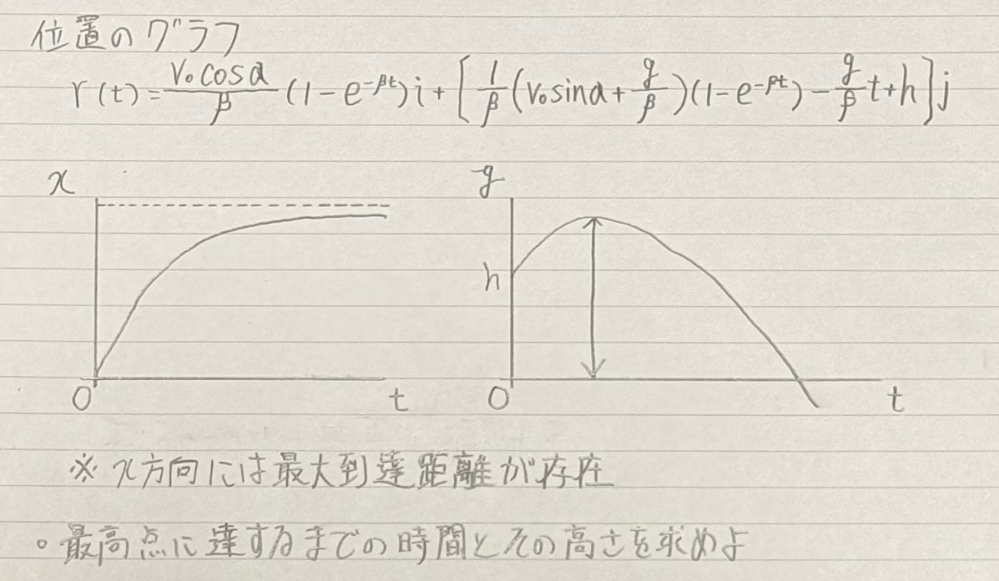 位置のグラフ
r(t)=v₀cosα/β(1-e^-βt)i+[1/β(v₀sinα+g/β)(1-e^-βt)-g/βt+h]j
x
y
h
0 t 0 t
※ x方向には最大到達距離が存在
。最高点に達するまでの時間とその高さを求めよ